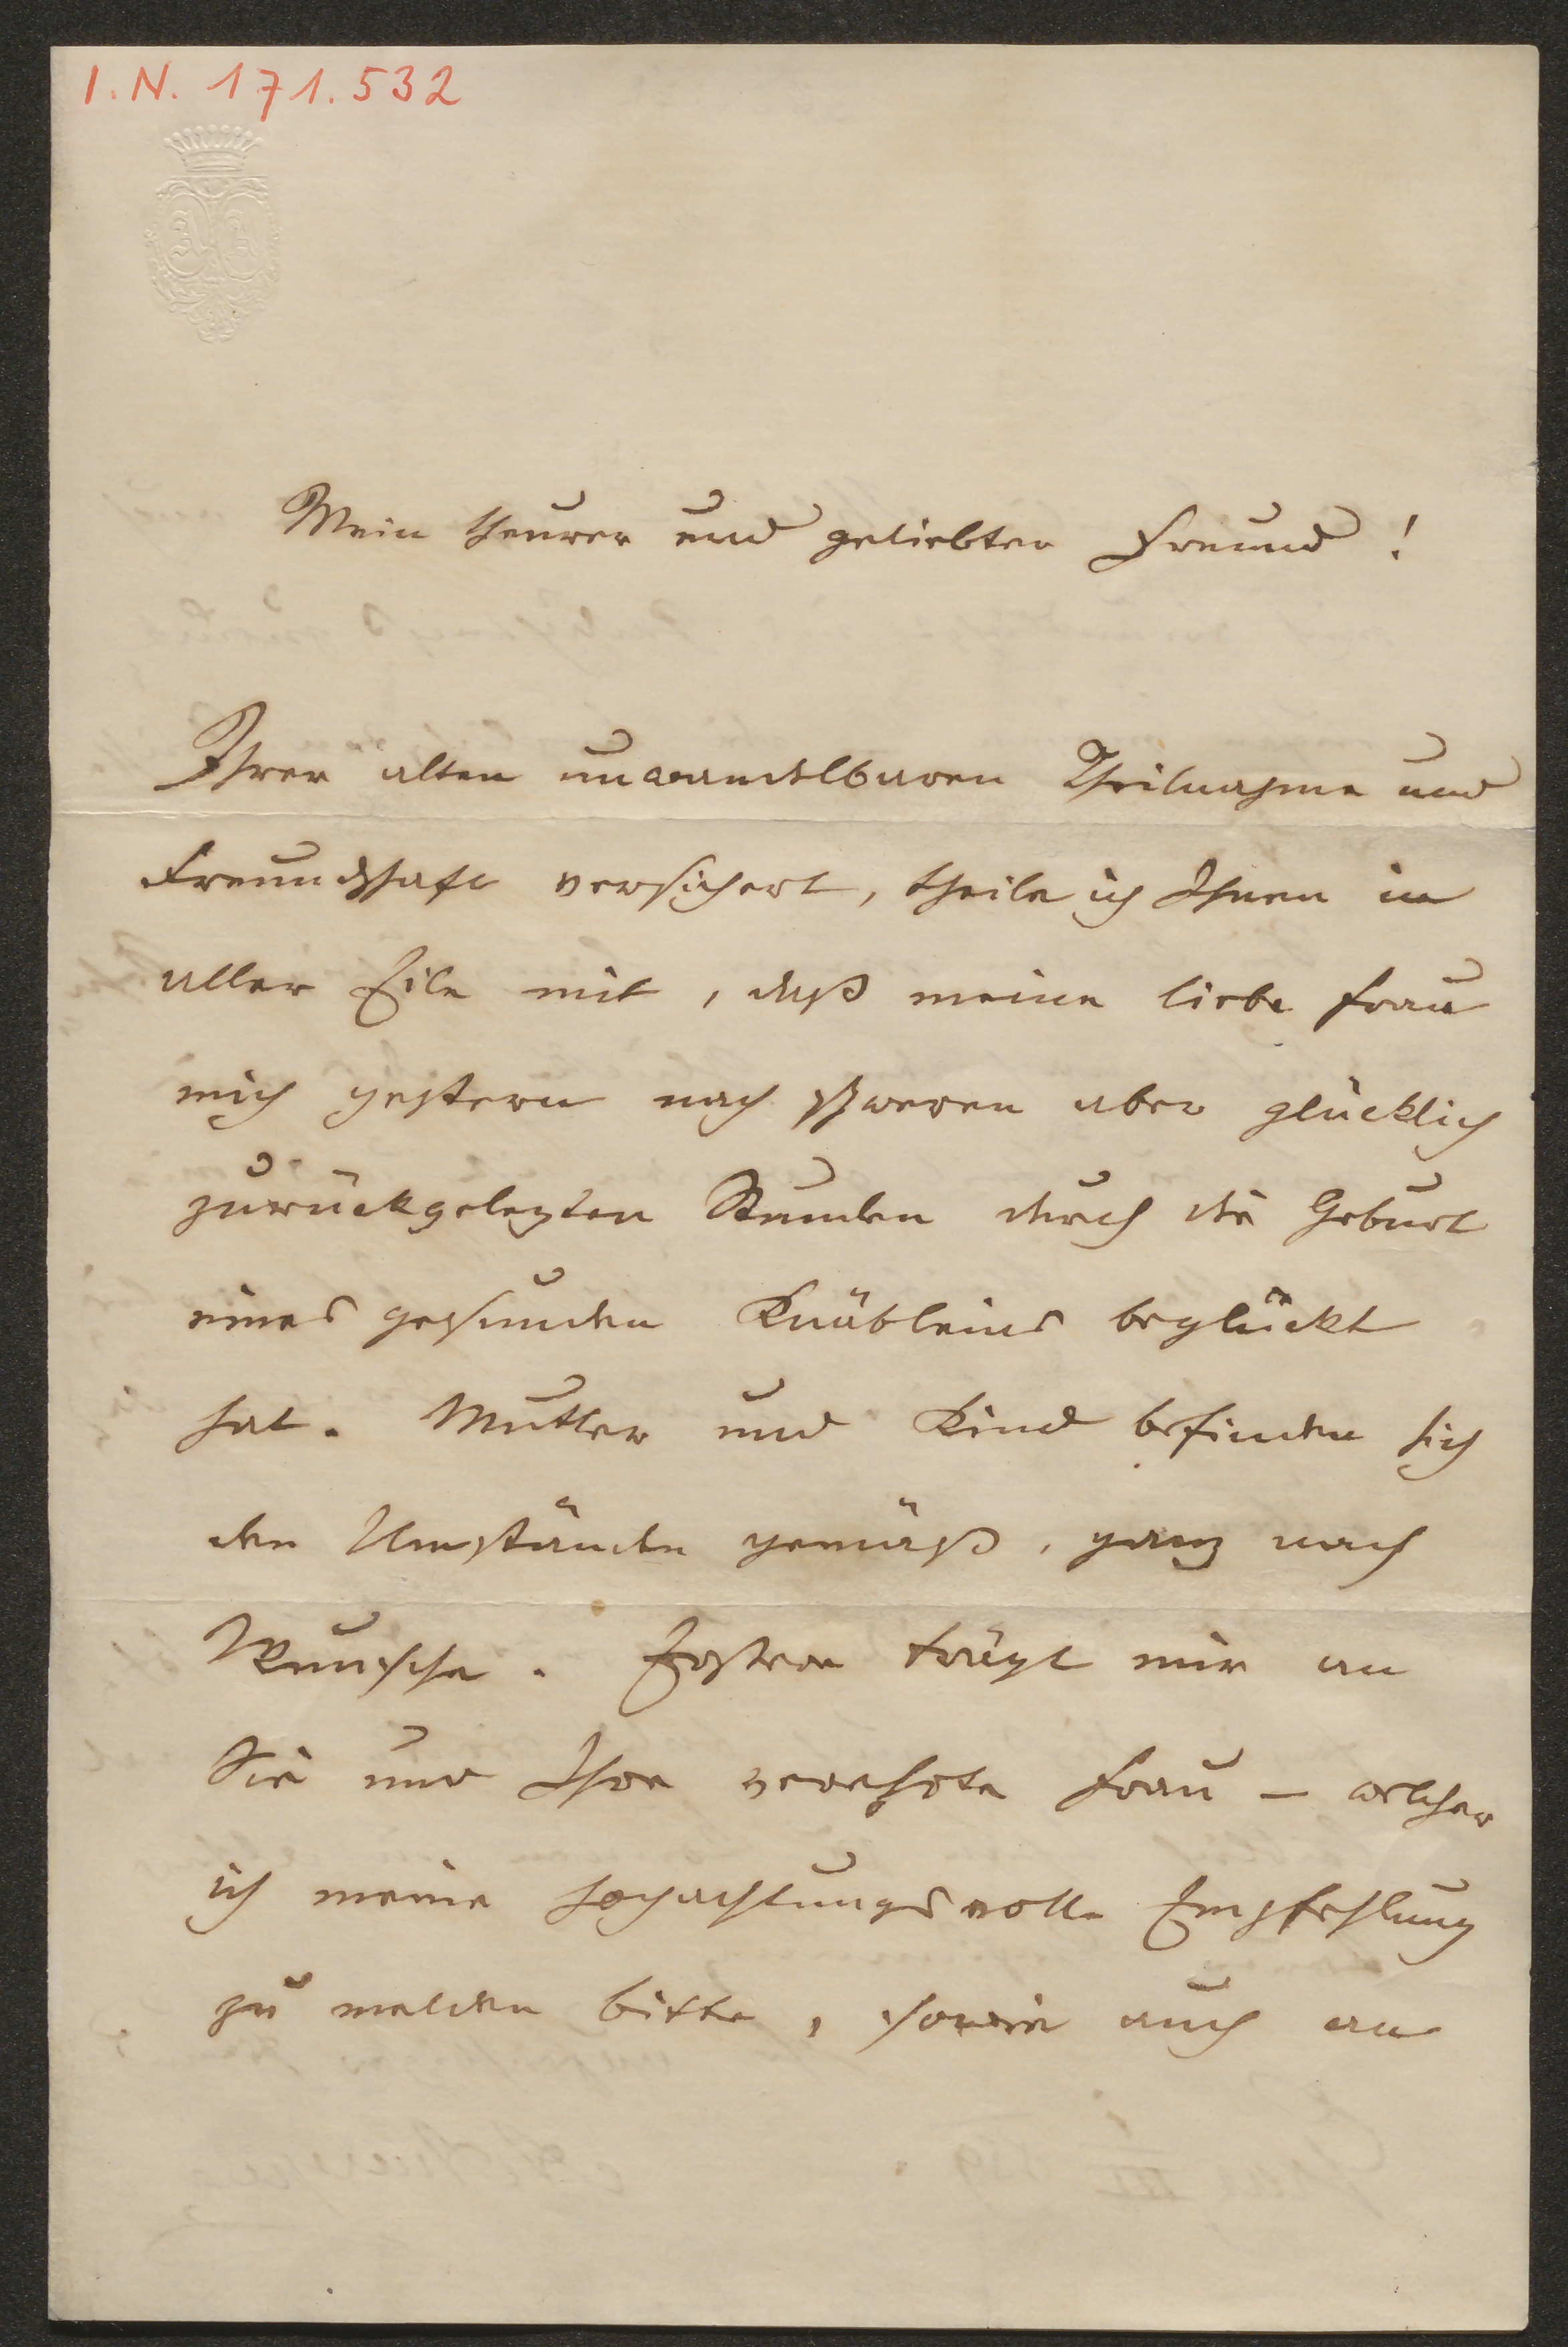 I. N. 171.532
A A
Mein theurer und geliebter Freund!
Ihrer alten unwandelbaren Theilnahme und
Freundschaft versichert, theile ich Ihnen in
aller Eile mit, daß meine liebe Frau
mich gestern nach schweren aber glücklich
zurückgelegten Stunden durch die Geburt
eines gesunden Knäbleins beglückt
hat. Mutter und Kind befinden sich
den Umständen gemäß, ganz nach
Wunsche. Erstere trägt mir an
Sie und Ihre verehrte Frau – welcher
ich meine hochachtungsvolle Empfehlung
zu melden bitte, sowie auch an